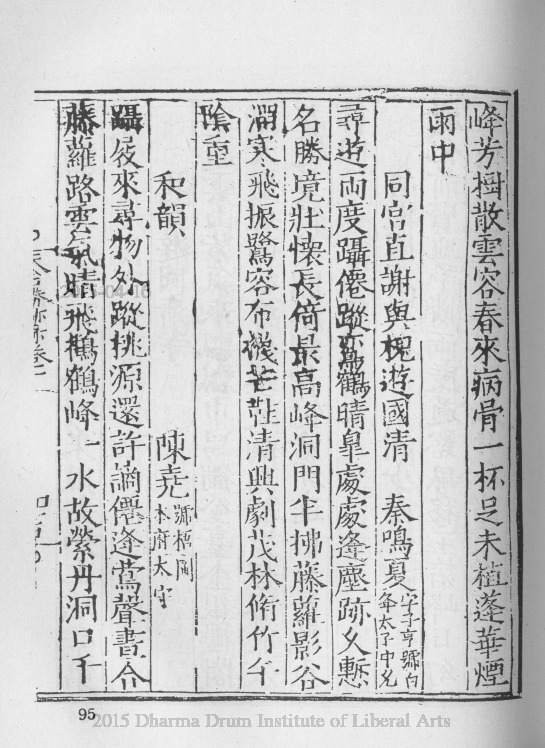 峰芳樹散雲容春來病骨一杯足未植蓬華煙
雨中
同宮直謝與槐遊國清 秦鳴夏字子亨號白
太子中允
尋遊兩度躡僊蹤鶴晴皐處處逢塵跡久慙
名勝境壯懷長倚最高峰洞門半拂藤蘿影谷
澗寒飛振鷺容布襪芒鞵清興劇茂林脩竹午
陰重
和韻 陳堯號梧岡
本府太守
躡屐來尋物外蹤桃源還許謫僊逢鶯聲晝合
藤蘿路雲氣晴飛鸛鶴峰一水故縈丹洞口千
95
2015 Dharma Drum Institute of Liberal Arts